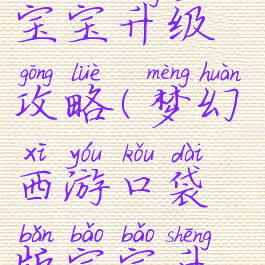 宝宝升级
gōng lüè mèng huàn
攻略(梦幻
xī yóu kǒu dài
西游口袋
bǎn bǎo bǎo shēng
版宝宝升